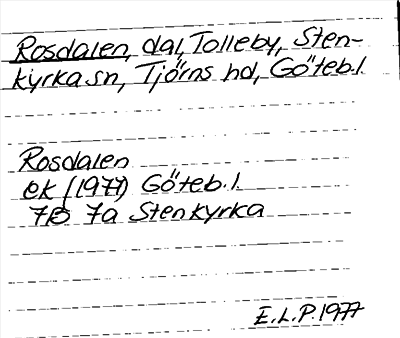 Rosdalen, dal, Tolleby, Sten-
kyrka sn, Tjörns hd, Göteb.l
Rosdalen
ek (1977) Göteb.l.
7B 7a Stenkyrka
E.L.P. 1977